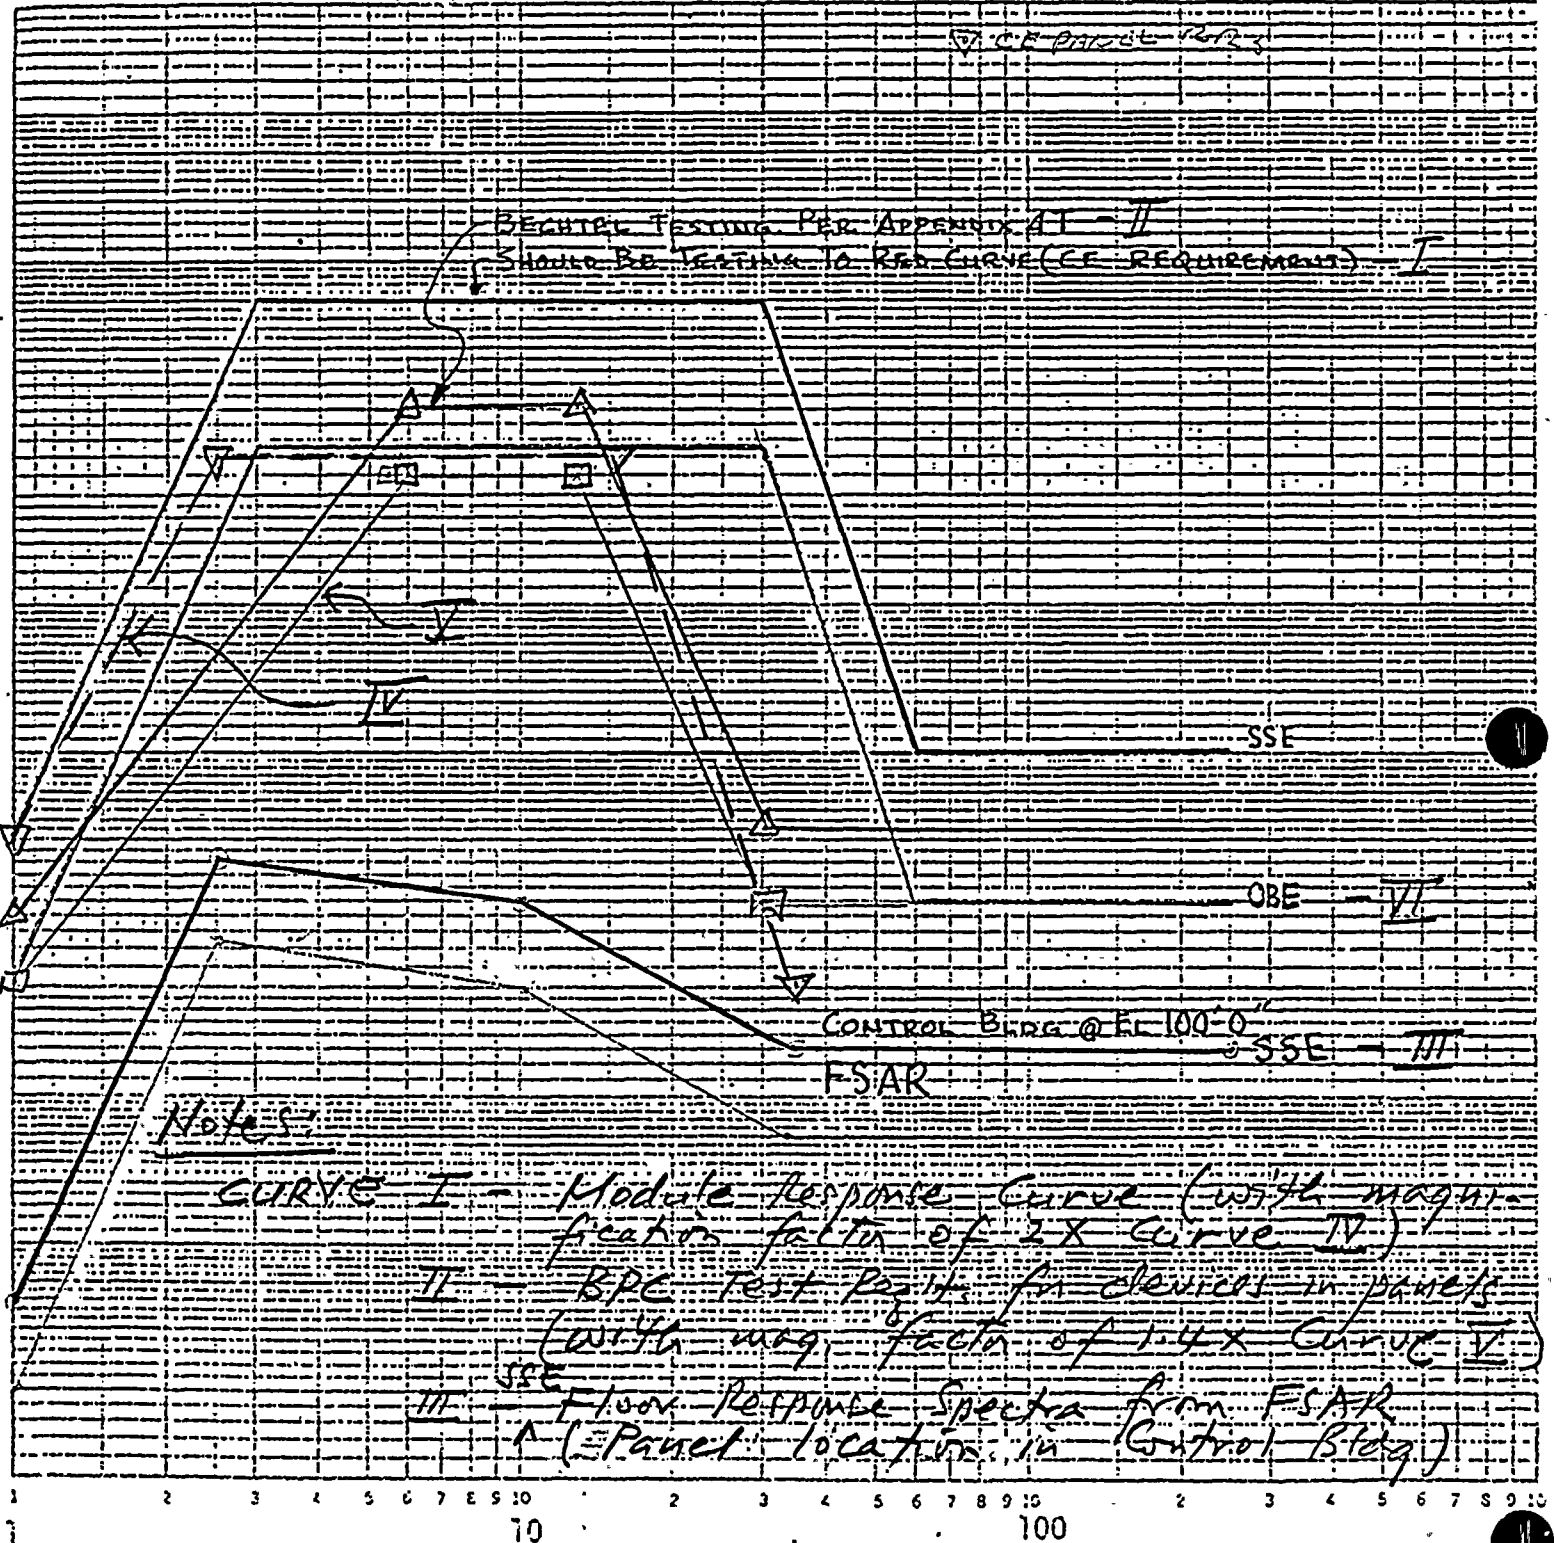 ▽ CE PANEL RRS
BECHTEL TESTING PER APPENDIX 4T - II
SHOULD BE TESTING TO RED CURVE (CE REQUIREMENT) - I
V
IV
SSE
OBE - VI
CONTROL BLDG @ EL 100'0"
SSE - III
FSAR
Notes:
CURVE I - Module Response Curve (with magni-
fication factor of 2X Curve IV)
II - BPC Test Reqts. for devices in panels
(with mag. factor of 1.4X Curve V)
III - SSE Floor Response Spectra from FSAR
(Panel location in Control Bldg)
1 2 3 4 5 6 7 8 9 10 2 3 4 5 6 7 8 9 10 2 3 4 5 6 7 8 9 10
1 10 100